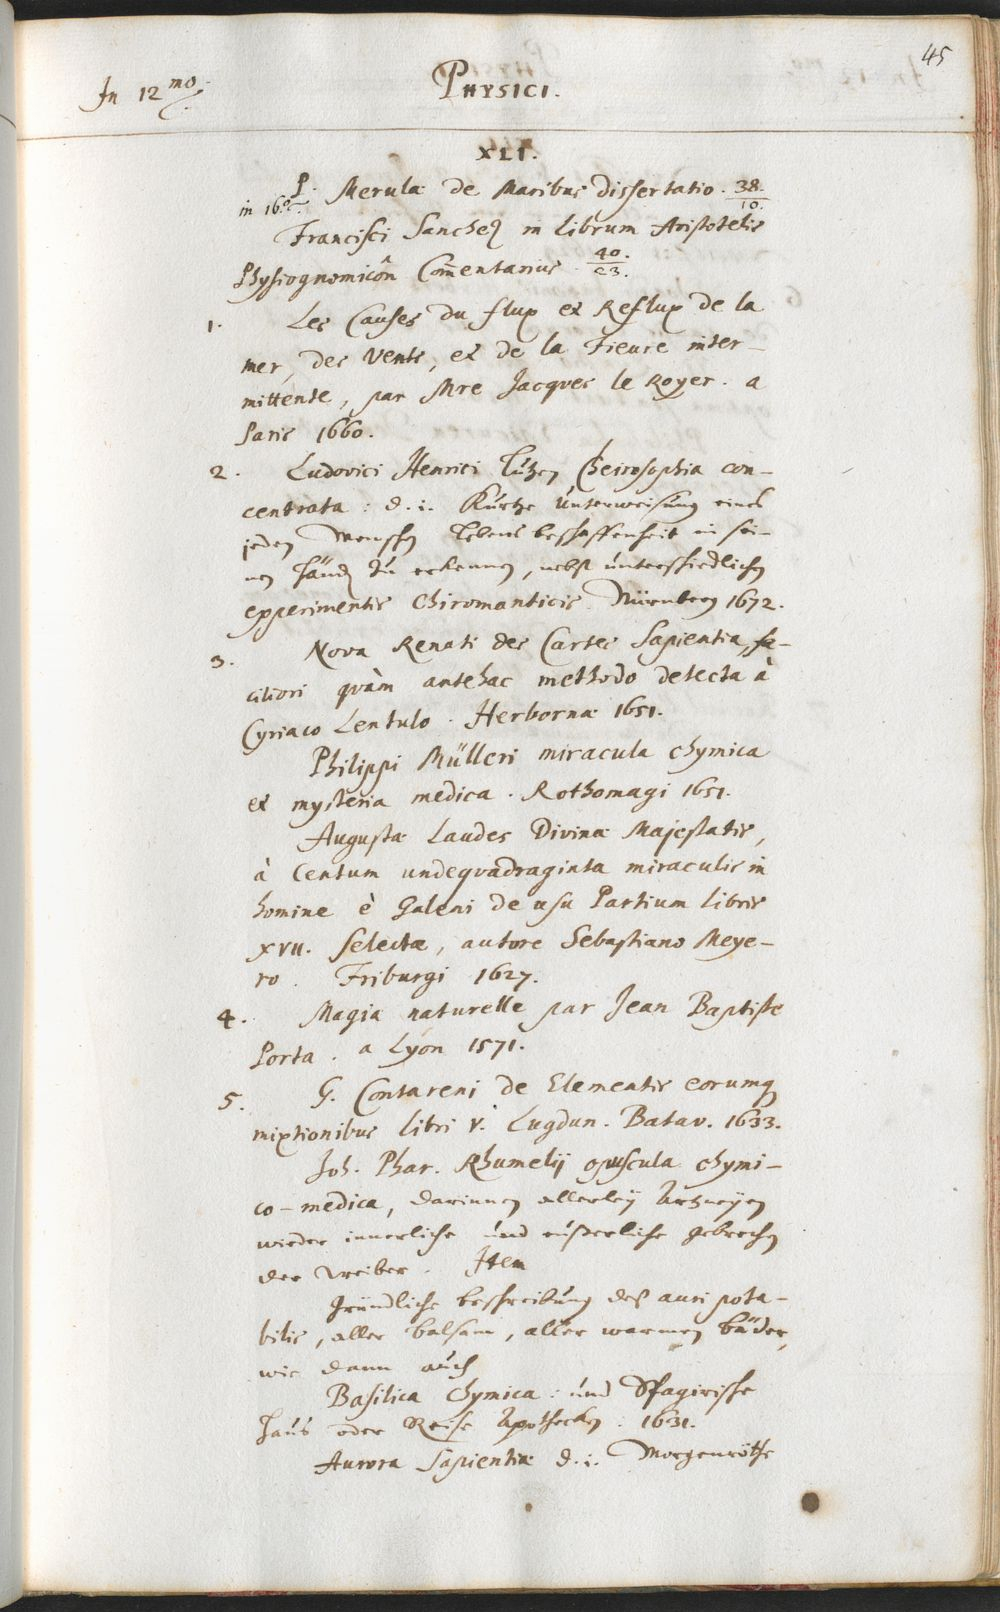 45
In 12mo. PHYSICI.
XLI.
in 16.o P. Merulæ de Maribus dissertatio. 38./10.
Francisci Sanchez in Librum Aristotelis
Physiognomicôn Com̄entarius. 40./23.
1. Les Causes du flux et Reflux de la
mer, des Vents, et de la Fieure inter-
mittente, par Mre Jacques le Royer. a
Paris 1660.
2. Ludovici Henrici Lutzen Cheirosophia con-
centrata: d.i. Kurtze Unterweisung eines
jeden Menschen Lebens beschaffenheit in sei-
nen Händen zu erkennen, nebst unterschiedlichen
experimentis Chiromanticis. Nürnberg 1672.
3. Nova Renati des Cartes Sapientia, fa-
ciliori quàm antehac methodo detecta à
Cyriaco Lentulo. Herbornæ 1651.
Philippi Mülleri miracula chymica
et mysteria medica. Rothomagi 1651.
Augustæ Laudes Divinæ Majestatis,
à Centum undequadraginta miraculis in
homine è Galeni de usu Partium Libris
XVII. Selectæ, autore Sebastiano Meye-
ro. Friburgi 1627.
4. Magia naturelle par Jean Baptiste
Porta. a Lyon 1571.
5. G. Contareni de Elementis eorumq
mixtionibus libri V. Lugdun. Batav. 1633.
Joh. Phar. Rhumelij opuscula chymi-
co-medica, darinnen allerley Artzneyen
wieder innerliche und eußerliche gebrechen
der Weiber. Item
Gründliche beschreibung deß auri pota-
bilis, aller balsam, aller warmen bäder,
wie dann auch
Basilica Chymica: und Spagirische
Hauß oder Reise Apothecken. 1631.
Aurora Sapientiæ d.i. Morgenröthe